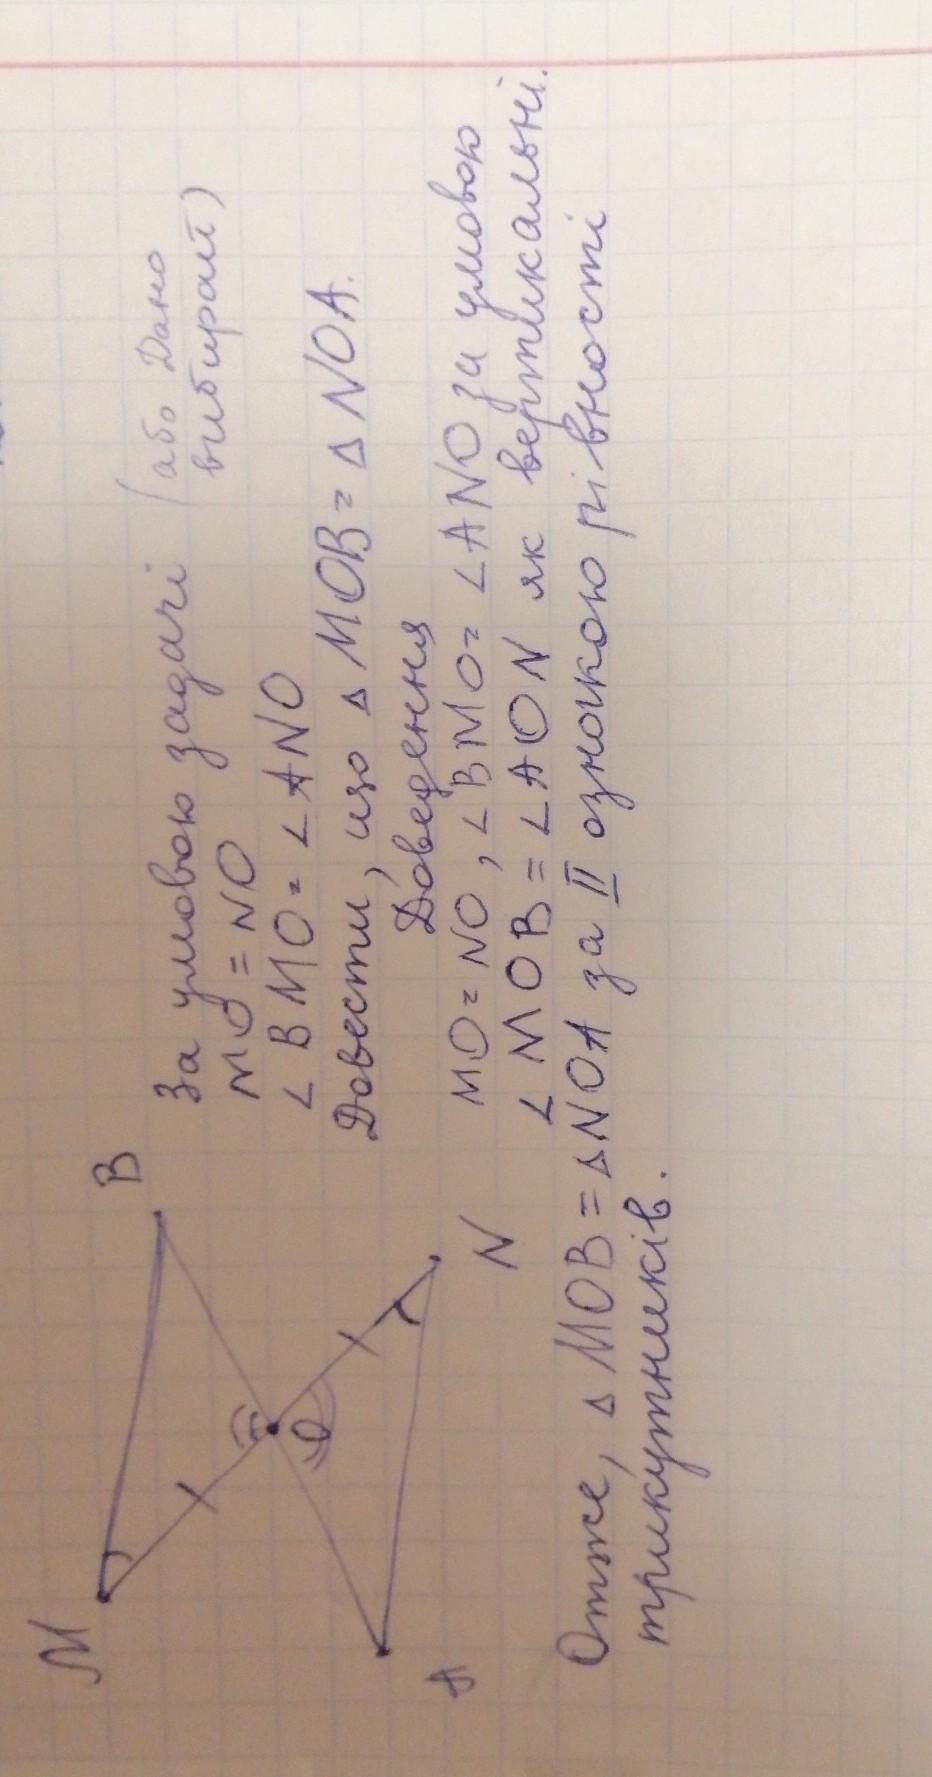 M
B
O
A
N
За умовою задачі (або Дано
вибирай)
MO = NO
∠BMO = ∠ANO
Довести, що ΔMOB = ΔNOA.
Доведення
MO = NO, ∠BMO = ∠ANO за умовою
∠MOB = ∠AON як вертикальні.
Отже, ΔMOB = ΔNOA за II ознокою рівності
трикутників.